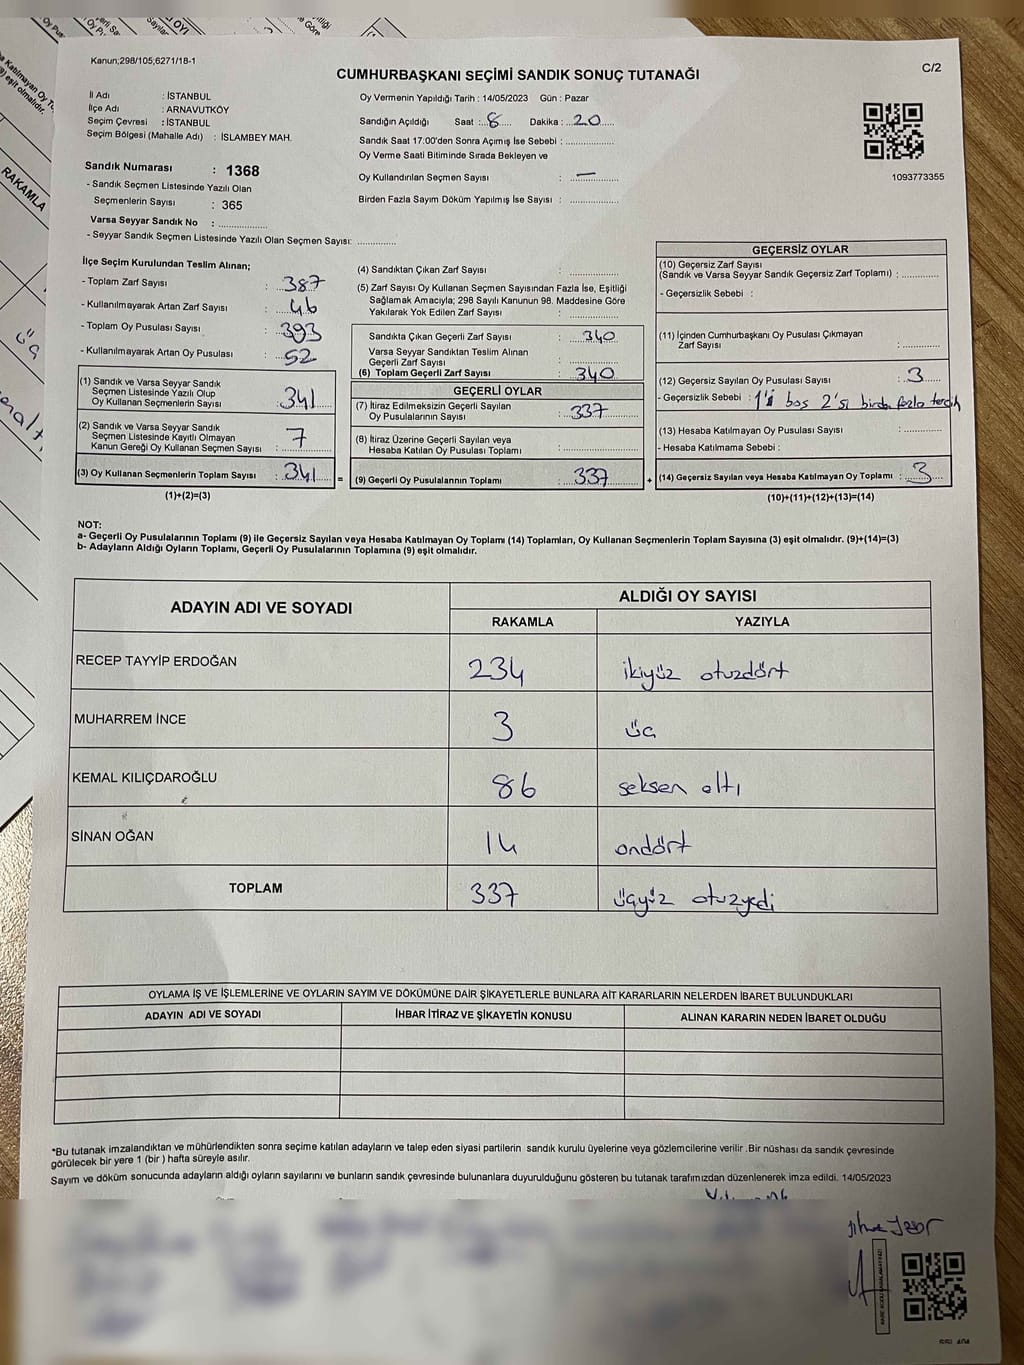 Kanun;298/105;6271/18-1
CUMHURBAŞKANI SEÇİMİ SANDIK SONUÇ TUTANAĞI
C/2
İl Adı : İSTANBUL
İlçe Adı : ARNAVUTKÖY
Seçim Çevresi : İSTANBUL
Seçim Bölgesi (Mahalle Adı) : İSLAMBEY MAH.
Sandık Numarası : 1368
- Sandık Seçmen Listesinde Yazılı Olan
Seçmenlerin Sayısı : 365
Varsa Seyyar Sandık No :
- Seyyar Sandık Seçmen Listesinde Yazılı Olan Seçmen Sayısı:
Oy Vermenin Yapıldığı Tarih : 14/05/2023 Gün : Pazar
Sandığın Açıldığı Saat : 8 Dakika : 20
Sandık Saat 17:00'den Sonra Açımış İse Sebebi :
Oy Verme Saati Bitiminde Sırada Bekleyen ve
Oy Kullandırılan Seçmen Sayısı : —
Birden Fazla Sayım Döküm Yapılmış İse Sayısı :
1093773355
İlçe Seçim Kurulundan Teslim Alınan;
- Toplam Zarf Sayısı : 387
- Kullanılmayarak Artan Zarf Sayısı : 46
- Toplam Oy Pusulası Sayısı : 393
- Kullanılmayarak Artan Oy Pusulası : 52
(1) Sandık ve Varsa Seyyar Sandık
Seçmen Listesinde Yazılı Olup
Oy Kullanan Seçmenlerin Sayısı : 341
(2) Sandık ve Varsa Seyyar Sandık
Seçmen Listesinde Kayıtlı Olmayan
Kanun Gereği Oy Kullanan Seçmen Sayısı : 7
(3) Oy Kullanan Seçmenlerin Toplam Sayısı : 341 =
(1)+(2)=(3)
(4) Sandıktan Çıkan Zarf Sayısı :
(5) Zarf Sayısı Oy Kullanan Seçmen Sayısından Fazla İse, Eşitliği
Sağlamak Amacıyla; 298 Sayılı Kanunun 98. Maddesine Göre
Yakılarak Yok Edilen Zarf Sayısı :
Sandıkta Çıkan Geçerli Zarf Sayısı : 340
Varsa Seyyar Sandıktan Teslim Alınan
Geçerli Zarf Sayısı :
(6) Toplam Geçerli Zarf Sayısı : 340
GEÇERLİ OYLAR
(7) İtiraz Edilmeksizin Geçerli Sayılan
Oy Pusulalarının Sayısı : 337
(8) İtiraz Üzerine Geçerli Sayılan veya
Hesaba Katılan Oy Pusulası Toplamı :
(9) Geçerli Oy Pusulalarının Toplamı : 337 +
GEÇERSİZ OYLAR
(10) Geçersiz Zarf Sayısı
(Sandık ve Varsa Seyyar Sandık Geçersiz Zarf Toplamı) :
- Geçersizlik Sebebi :
(11) İçinden Cumhurbaşkanı Oy Pusulası Çıkmayan
Zarf Sayısı :
(12) Geçersiz Sayılan Oy Pusulası Sayısı : 3
- Geçersizlik Sebebi : 1'i boş 2'si birden fazla tercih
(13) Hesaba Katılmayan Oy Pusulası Sayısı :
- Hesaba Katılmama Sebebi :
(14) Geçersiz Sayılan veya Hesaba Katılmayan Oy Toplamı : 3
(10)+(11)+(12)+(13)=(14)
NOT:
a- Geçerli Oy Pusulalarının Toplamı (9) ile Geçersiz Sayılan veya Hesaba Katılmayan Oy Toplamı (14) Toplamları, Oy Kullanan Seçmenlerin Toplam Sayısına (3) eşit olmalıdır. (9)+(14)=(3)
b- Adayların Aldığı Oyların Toplamı, Geçerli Oy Pusulalarının Toplamına (9) eşit olmalıdır.
ADAYIN ADI VE SOYADI
ALDIĞI OY SAYISI
RAKAMLA YAZIYLA
RECEP TAYYİP ERDOĞAN 234 ikiyüz otuzdört
MUHARREM İNCE 3 üç
KEMAL KILIÇDAROĞLU 86 seksen altı
SİNAN OĞAN 14 ondört
TOPLAM 337 üçyüz otuzyedi
OYLAMA İŞ VE İŞLEMLERİNE VE OYLARIN SAYIM VE DÖKÜMÜNE DAİR ŞİKAYETLERLE BUNLARA AİT KARARLARIN NELERDEN İBARET BULUNDUKLARI
ADAYIN ADI VE SOYADI İHBAR İTİRAZ VE ŞİKAYETİN KONUSU ALINAN KARARIN NEDEN İBARET OLDUĞU
*Bu tutanak imzalandıktan ve mühürlendikten sonra seçime katılan adayların ve talep eden siyasi partilerin sandık kurulu üyelerine veya gözlemcilerine verilir .Bir nüshası da sandık çevresinde
görülecek bir yere 1 (bir ) hafta süreyle asılır.
Sayım ve döküm sonucunda adayların aldığı oyların sayılarını ve bunların sandık çevresinde bulunanlara duyurulduğunu gösteren bu tutanak tarafımızdan düzenlenerek imza edildi. 14/05/2023
RAKAMLA